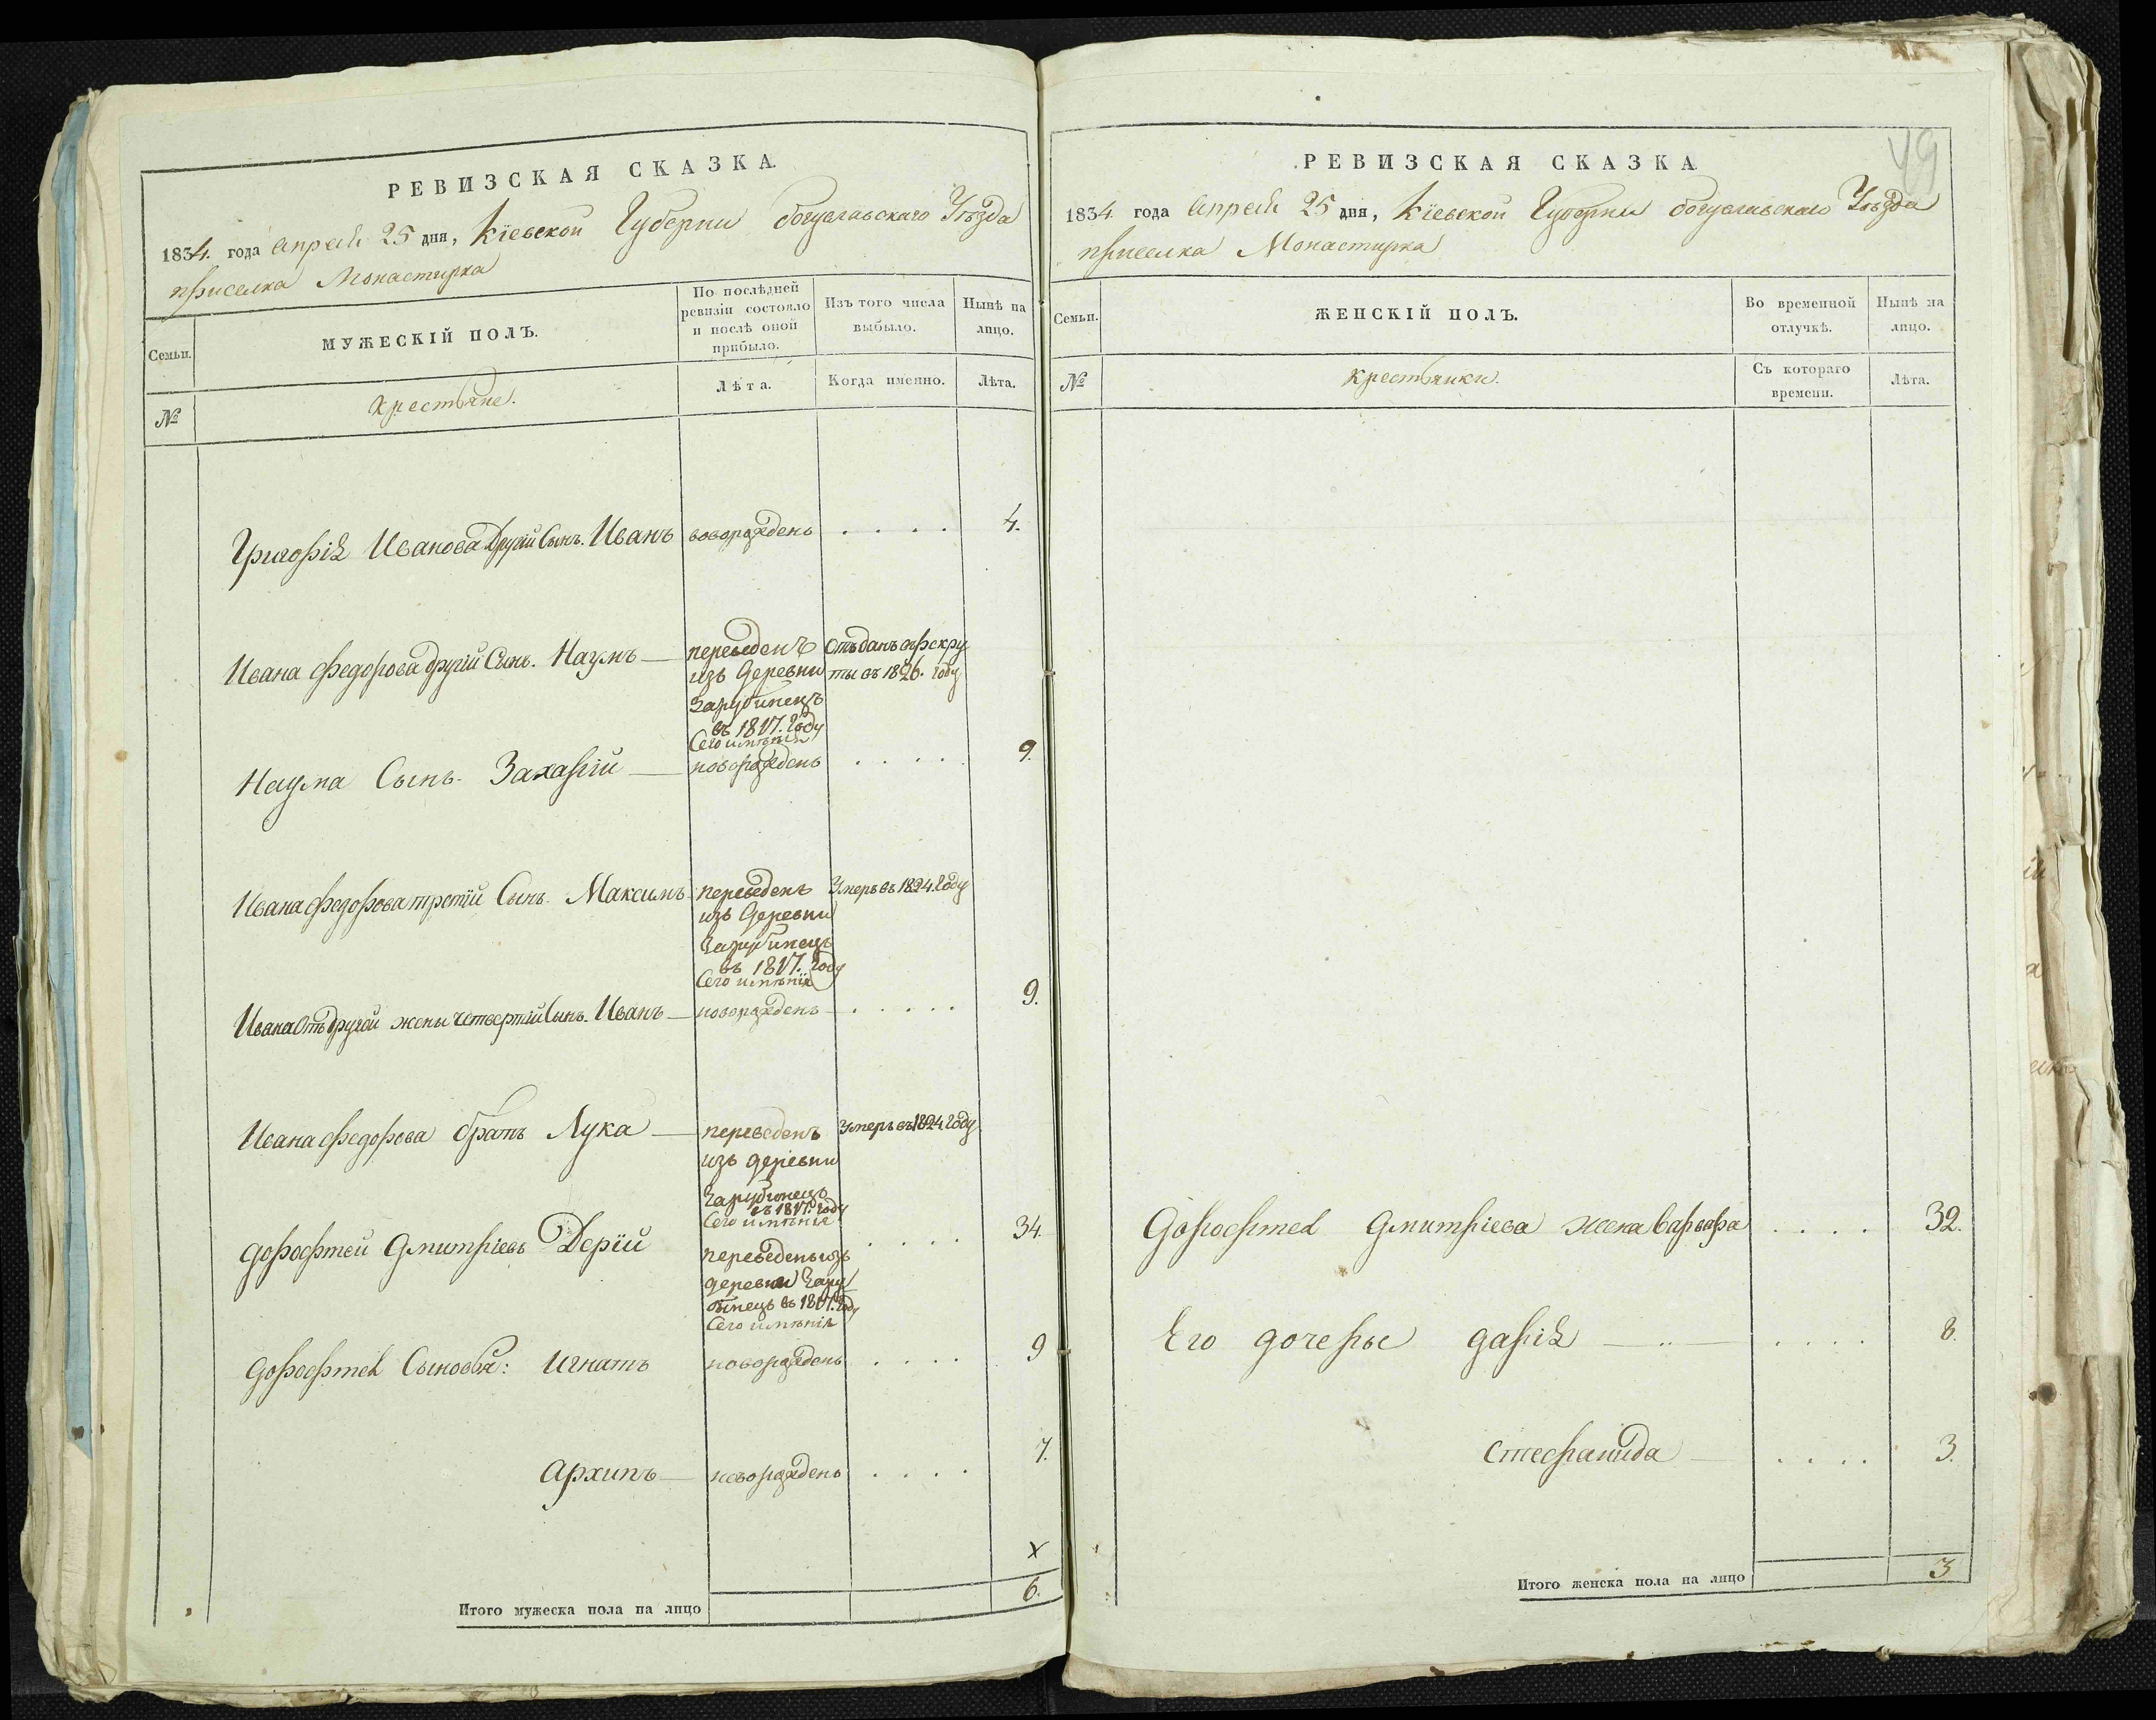 РЕВИЗСКАЯ СКАЗКА
1834. года Апреля 25 дня, Кіевской Губерни богуславскаго Уѣзда
приселка Монастирка
Семьи.
МУЖЕСКІЙ ПОЛЪ.
По послѣдней
ревизіи состояло
и послѣ оной
прибыло.
Изъ того числа
выбыло.
Нынѣ на
лицо.
№
Крестьяне.
Лѣта.
Когда именно.
Лѣта.
Григорія Иванова Другій Сынъ. Иванъ новорожденъ . . . . 4.
Ивана Федорова другій Сынъ. Наумъ — переведенъ Отъданъ врекру
изъ Деревни ты въ 1826. году
Зарубинецъ
въ 1817. Году
Сего имѣнія
Наума Сынъ. Захарій — новорожденъ . . . . . 9.
Ивана Федорова третій Сынъ. Максимъ переведенъ Умеръ въ 1824. Году
изъ Деревни
Зарубинецъ
въ 1817. Году
Сего имѣнія
Ивана Отъ Другой жены четвертій Сынъ. Иванъ — новорожденъ . . . . . 9.
Ивана Федорова братъ Лука — переведенъ Умеръ въ 1824 Году
изъ деревни
Зарубинецъ
въ 1817. Году
Сего имѣнія
дорофтей Дмитріевъ Дерій . . . . 34.
переведенъ изъ
деревни Зару
бинецъ въ 1817. Году
Сего имѣнія
дорофтея Сыновья: Игнатъ новорожденъ . . . . 9
Архипъ — новорожденъ . . . . 7.
x
Итого мужеска пола на лицо 6.
49
РЕВИЗСКАЯ СКАЗКА
1834. года Апреля 25 дня, Кіевской Губерни богуславскаго Уѣзда
приселка Монастирка
Семьи.
ЖЕНСКІЙ ПОЛЪ.
Во временной
отлучкѣ.
Нынѣ на
лицо.
№
Крестьянки.
Съ котораго
времени.
Лѣта.
Дорофтея Дмитріева жена Варвара . . . . 32.
Его дочеры дарія — „ — . . . . 8.
Стефанида — . . . . 3.
Итого женска пола на лицо 3